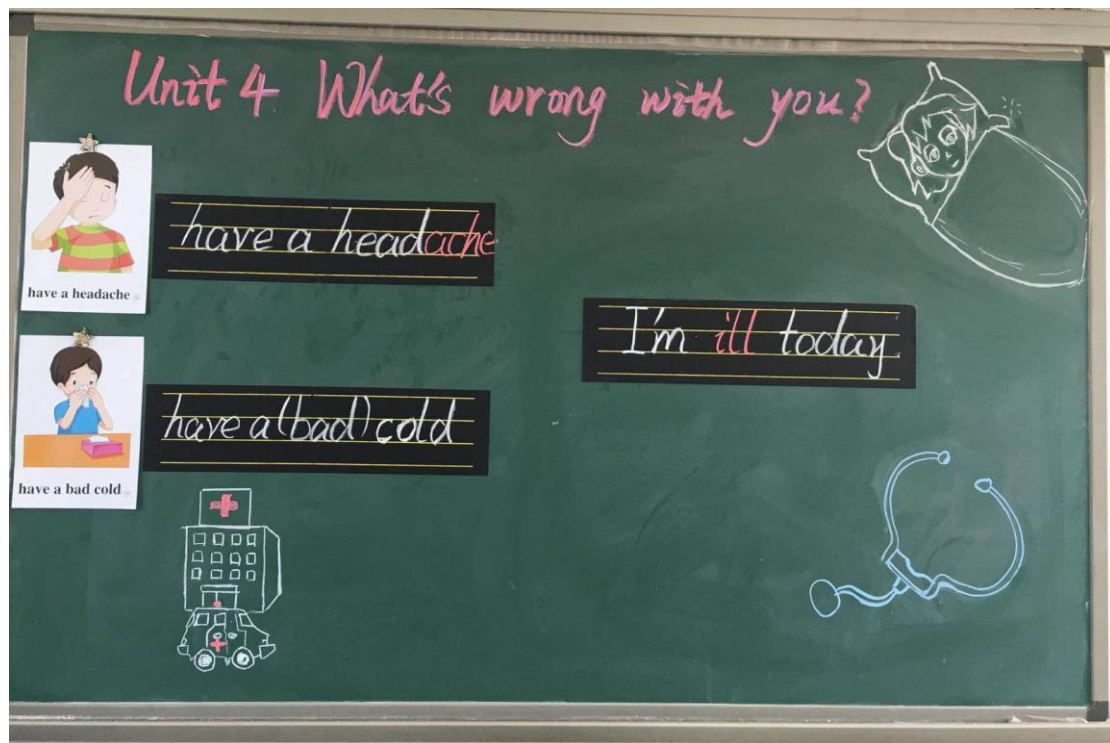 Unit 4 What's wrong with you?
have a headache
have a headache
I'm ill today.
have a (bad) cold
have a bad cold